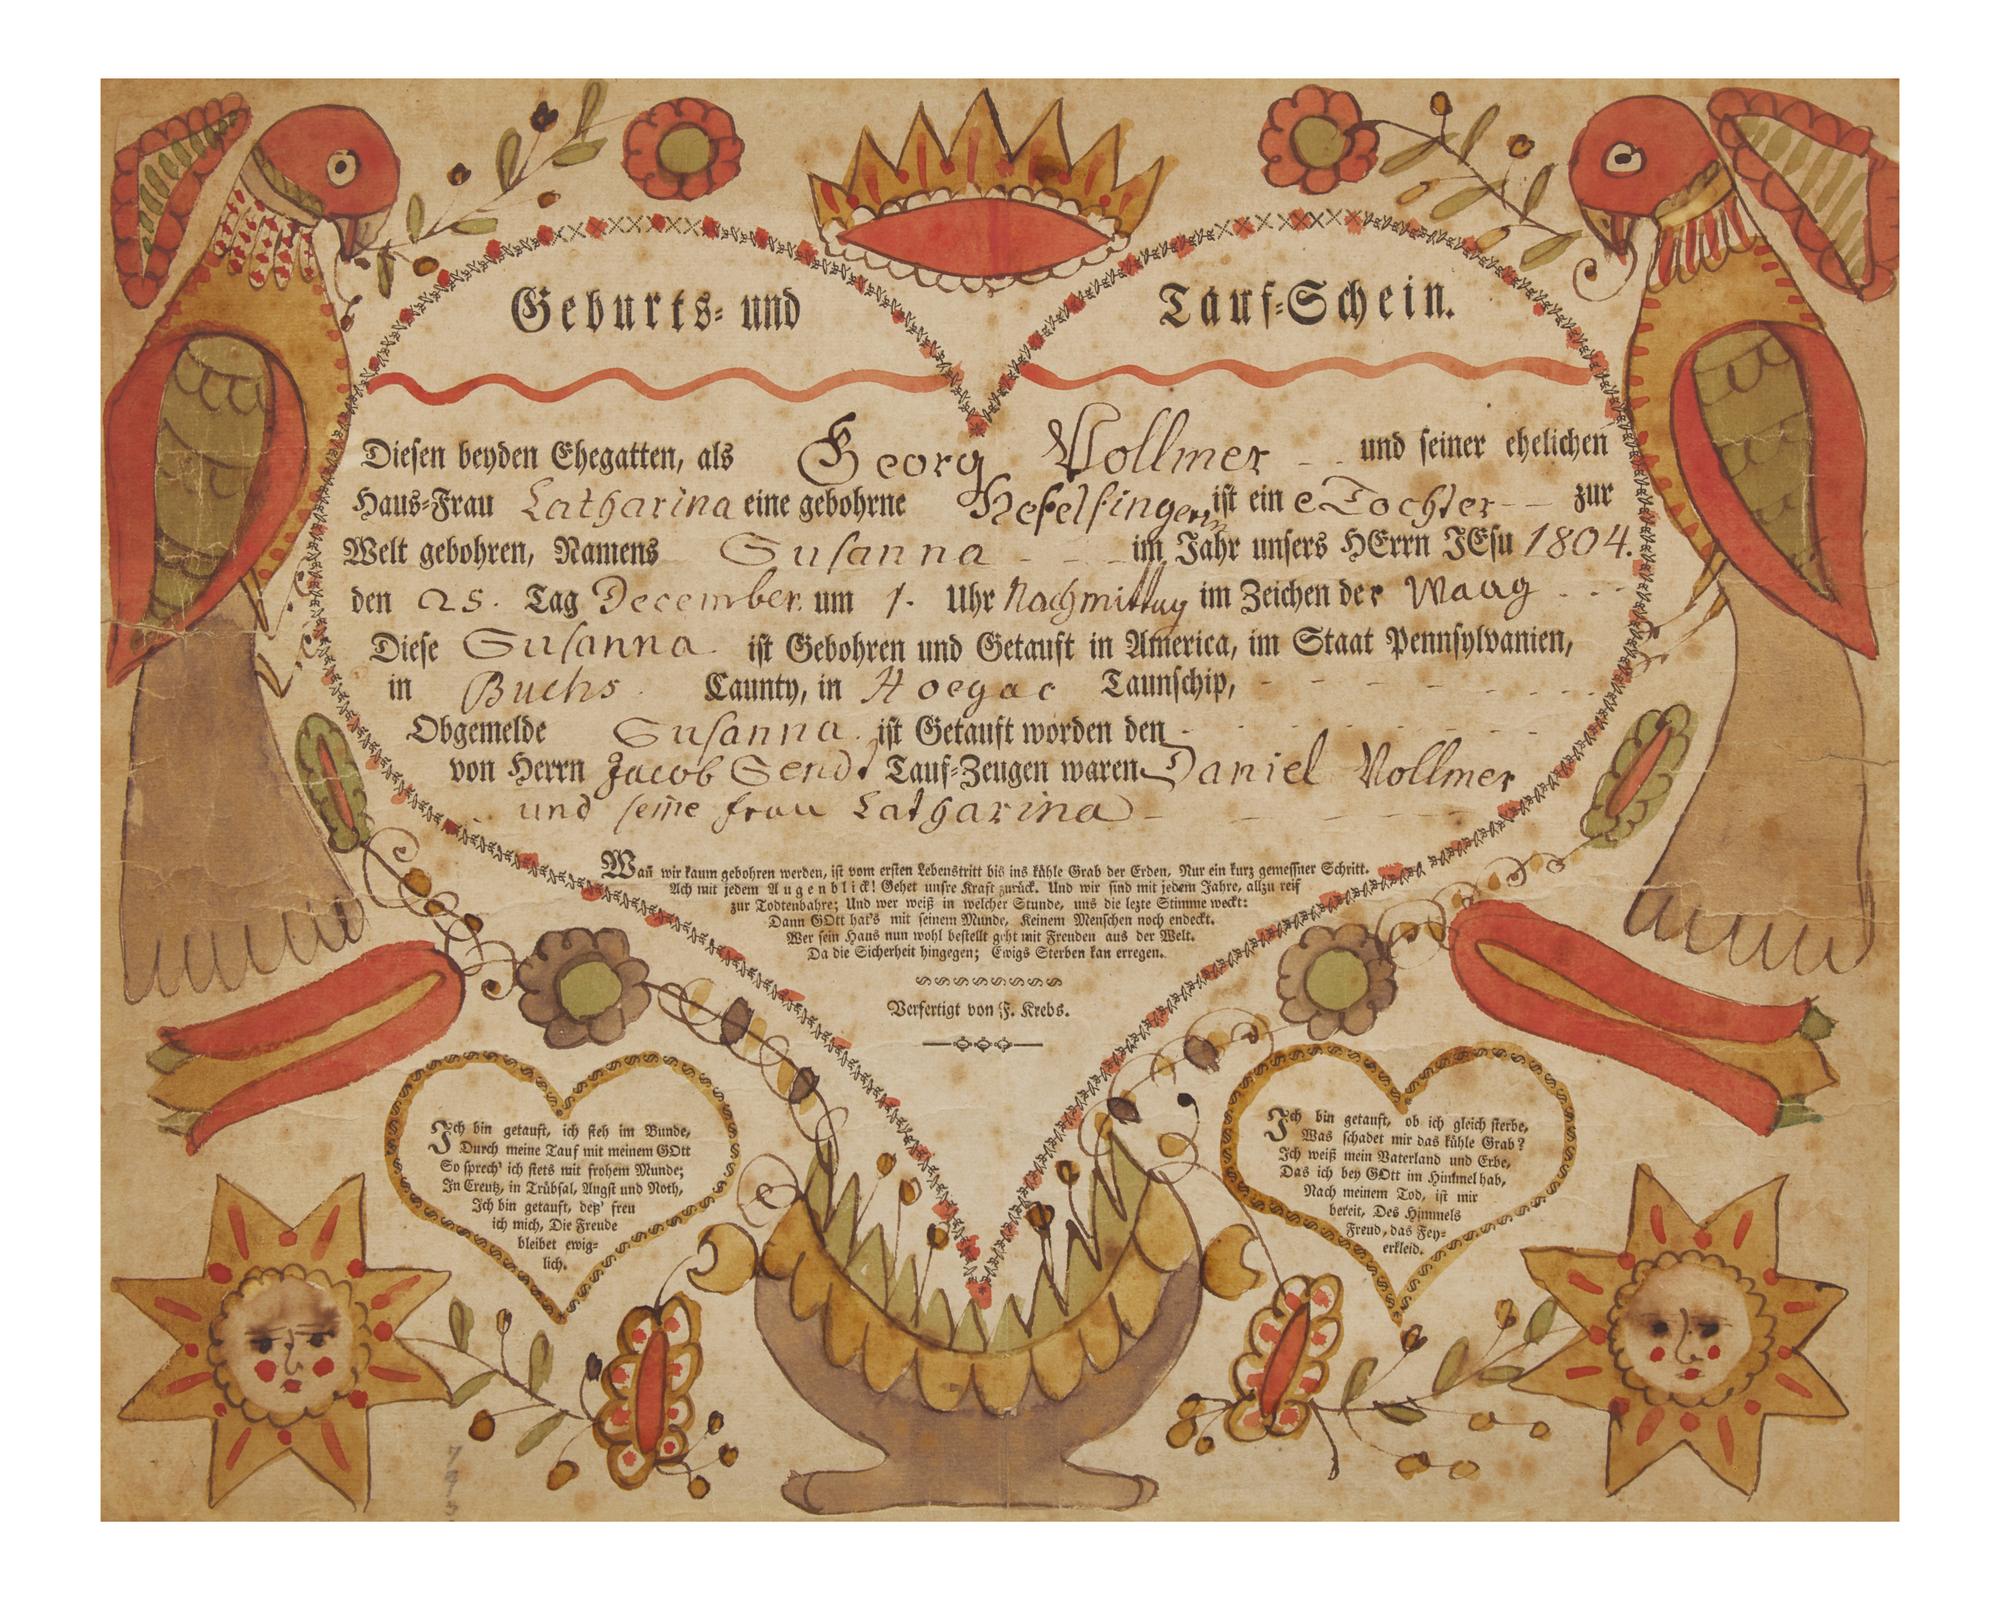 Geburts- und Tauf-Schein.
Diesen beyden Ehegatten, als Georg Vollmer und seiner ehelichen
Haus-Frau Catharina eine gebohrne Nefelfingerin ist eine Tochter zur
Welt gebohren, Namens Susanna im Jahr unsers HErrn JEsu 1804.
den 25. Tag December um 1. Uhr Nachmittag im Zeichen der Waag
Diese Susanna ist Gebohren und Getauft in America, im Staat Pennsylvanien,
in Buchs Caunty, in Taunschip,
Obgemelde Susanna ist Getauft worden den
von Herrn Jacob Send Tauf-Zeugen waren Daniel Vollmer
und seine frau Catharina
Wañ wir kaum gebohren werden, ist vom ersten Lebenstritt bis ins kühle Grab der Erden, Nur ein kurz gemeßner Schritt.
Ach mit jedem Augenblick! Gehet unsre Kraft zurück. Und wir sind mit jedem Jahre, allzu reif
zur Todtenbahre; Und wer weiß in welcher Stunde, uns die lezte Stimme weckt:
Dann GOtt hat's mit seinem Munde, Keinem Menschen noch endeckt.
Wer sein Haus nun wohl bestellt geht mit Freuden aus der Welt.
Da die Sicherheit hingegen; Ewigs Sterben kan erregen.
Verfertigt von F. Krebs.
Ich bin getauft, ich steh im Bunde,
Durch meine Tauf mit meinem GOtt
So sprech' ich stets mit frohem Munde;
In Creutz, in Trübsal, Angst und Noth,
Ich bin getauft, deß' freu
ich mich, Die Freude
bleibet ewig-
lich.
Ich bin getauft, ob ich gleich sterbe,
Was schadet mir das kühle Grab?
Ich weiß mein Vaterland und Erbe,
Das ich bey GOtt im Himmel hab,
Nach meinem Tod, ist mir
bereit, Des Himmels
Freud, das Fey-
erkleid.